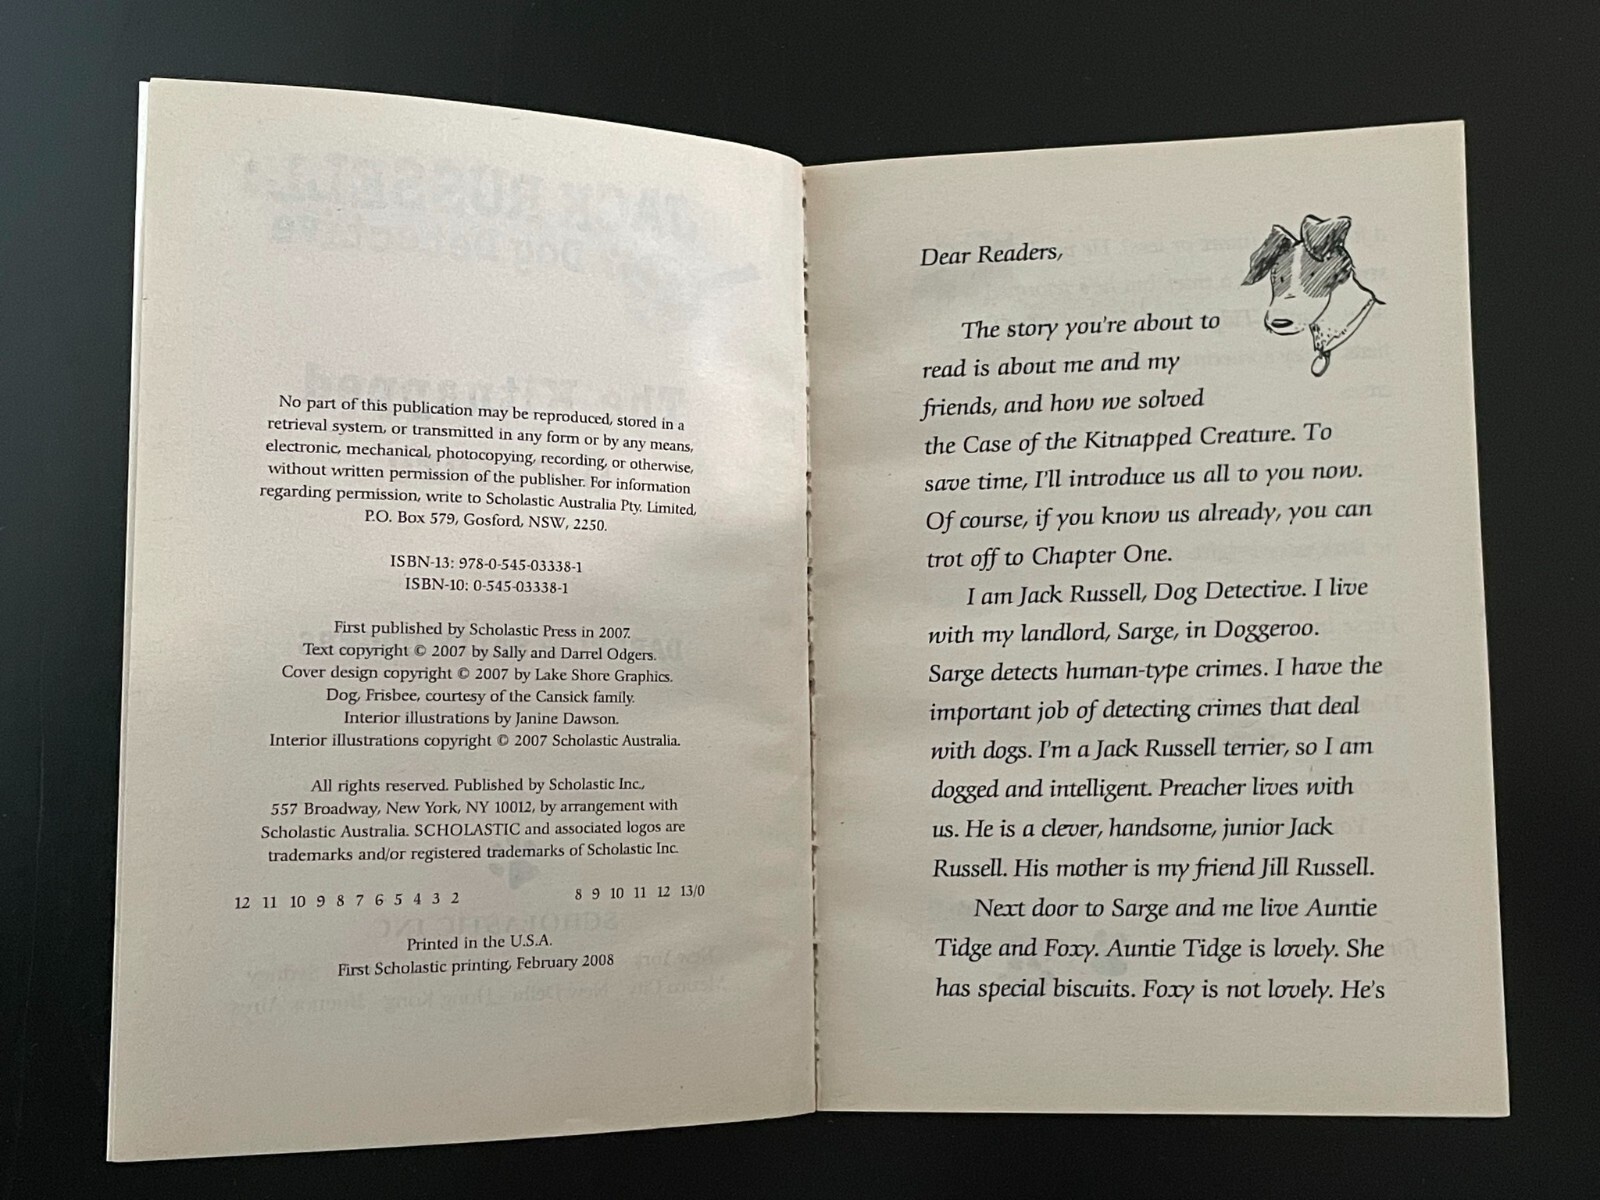 No part of this publication may be reproduced, stored in a
retrieval system, or transmitted in any form or by any means,
electronic, mechanical, photocopying, recording, or otherwise,
without written permission of the publisher. For information
regarding permission, write to Scholastic Australia Pty. Limited,
P.O. Box 579, Gosford, NSW, 2250.
ISBN-13: 978-0-545-03338-1
ISBN-10: 0-545-03338-1
First published by Scholastic Press in 2007.
Text copyright © 2007 by Sally and Darrel Odgers.
Cover design copyright © 2007 by Lake Shore Graphics.
Dog, Frisbee, courtesy of the Cansick family.
Interior illustrations by Janine Dawson.
Interior illustrations copyright © 2007 Scholastic Australia.
All rights reserved. Published by Scholastic Inc.,
557 Broadway, New York, NY 10012, by arrangement with
Scholastic Australia. SCHOLASTIC and associated logos are
trademarks and/or registered trademarks of Scholastic Inc.
12 11 10 9 8 7 6 5 4 3 2 8 9 10 11 12 13/0
Printed in the U.S.A.
First Scholastic printing, February 2008
Dear Readers,
The story you're about to
read is about me and my
friends, and how we solved
the Case of the Kitnapped Creature. To
save time, I'll introduce us all to you now.
Of course, if you know us already, you can
trot off to Chapter One.
I am Jack Russell, Dog Detective. I live
with my landlord, Sarge, in Doggeroo.
Sarge detects human-type crimes. I have the
important job of detecting crimes that deal
with dogs. I'm a Jack Russell terrier, so I am
dogged and intelligent. Preacher lives with
us. He is a clever, handsome, junior Jack
Russell. His mother is my friend Jill Russell.
Next door to Sarge and me live Auntie
Tidge and Foxy. Auntie Tidge is lovely. She
has special biscuits. Foxy is not lovely. He's